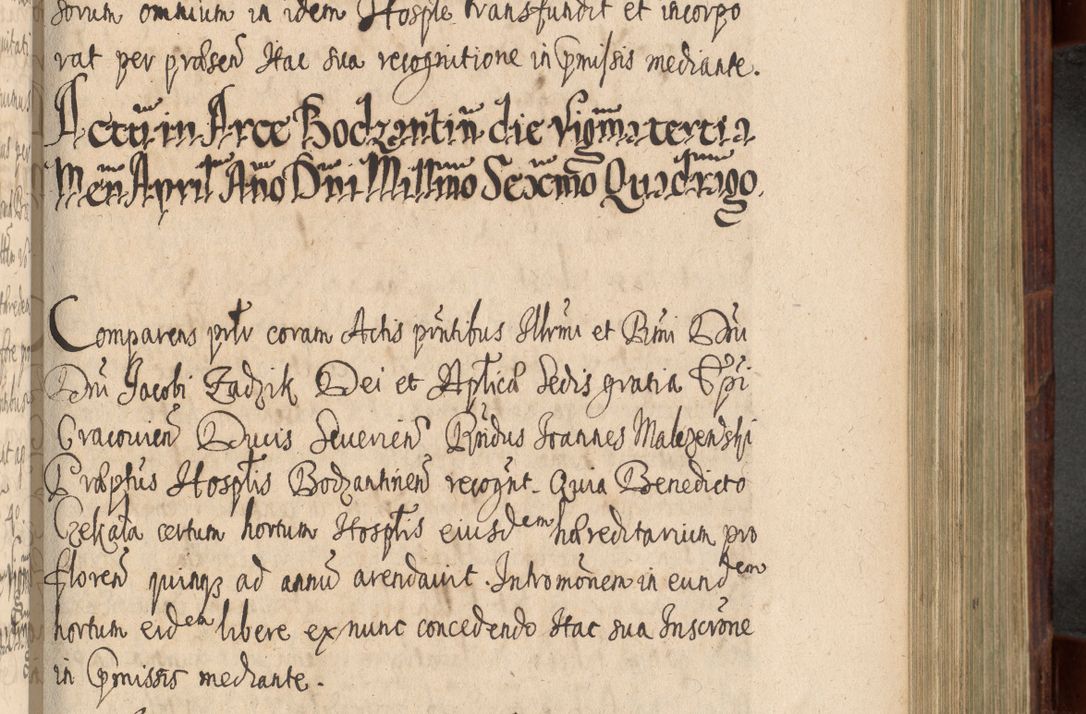 sorum omnium in idem Hosple transfundit et incorpo
rat per præsen̄ Hac sua recognitione in p̄missis mediante.
Actū in Arce Bodzantin̄ die Vigm̄a tertia
Men̄ April Año Dn̄i Millm̄o Sexcm̄o Quadrago.
Comparens pr̄lr coram Actis pn̄tibus Illrm̄i et Rm̄i Dn̄i
Dn̄i Jacobi Zadzik Dei et Aplica Sedis gratia Ep̄i
Cracovien̄ Ducis Severien̄ Rn̄dus Joannes Malczenski
Præptus Hosplis Bodzantinen̄ recogn̄t. Quia Benedicto
Czekala certum hortum Hosplis eiusdem hæreditarium pro
floren̄ quinqȝ ad annū arendavit. Intromōnem in eundem
hortum eidem libere ex nunc concedendo Hac sua Inscrōne
in p̄missis mediante.